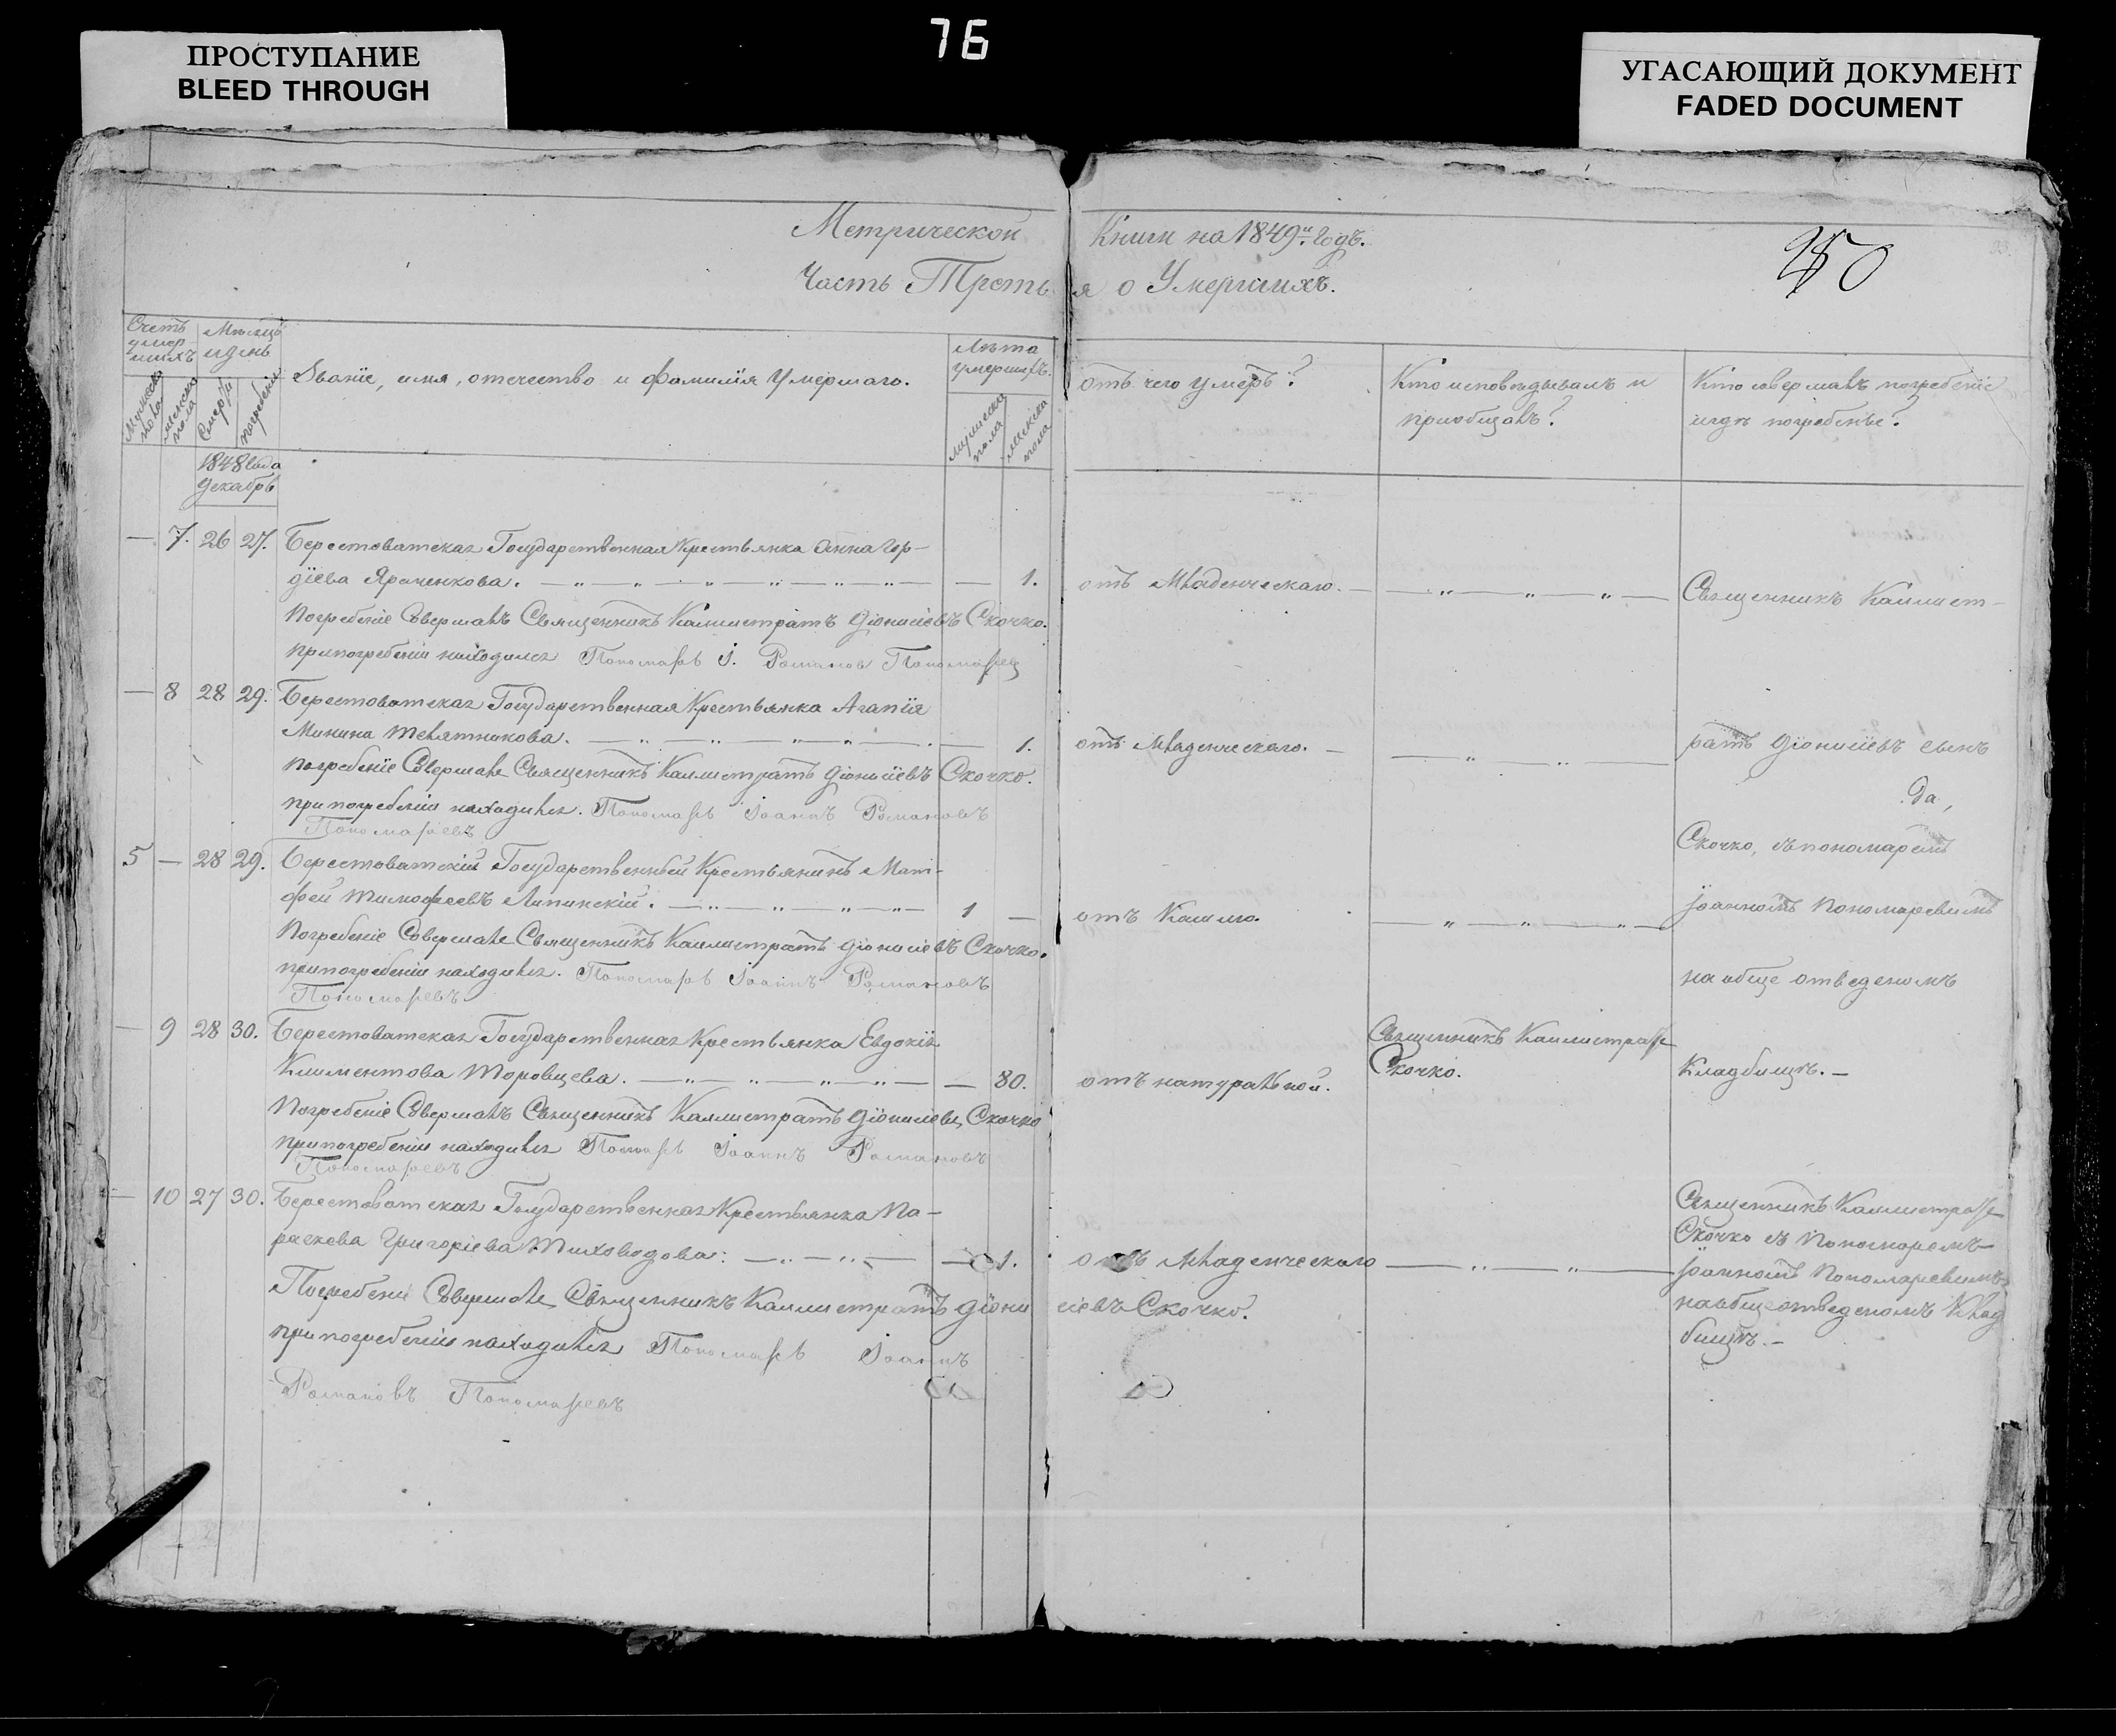 76
ПРОСТУПАНИЕ
BLEED THROUGH
УГАСАЮЩИЙ ДОКУМЕНТ
FADED DOCUMENT
Метрической Книги на 1849й Годъ.
250
Часть Третья о Умершихъ.
Счетъ умер-шихъ
Мѣсяцъ и день
Званіе, имя, отечество и фамилія Умершаго.
Лѣта умершихъ.
отъ чего умеръ?
Кто исповѣдывалъ и приобщалъ?
Кто совершалъ погребеніе и гдѣ погребены?
Мужеска пола
женска пола
Смерти
погребенія
мужеска пола
женска пола
1848 Года
Декабрь
— 7. 26 27. Берестоватская Государственная Крестьянка Анна Гор-
діева Яраченкова. — 1. отъ Младенческаго. — Священникъ Каллист-
Погребеніе Совершалъ Священникъ Каллистратъ Діонисіевъ Скочко.
при погребеніи находился Пономарь І. Романов Пономарев
— 8 28 29. Берестоватская Государственная Крестьянка Агапія
Минина Телятникова. — 1. отъ Младенческаго. — ратъ Діонисіевъ сынъ
погребеніе Совершалъ Священникъ Каллистратъ Діонисіевъ Скочко.
да,
при погребеніи находился. Пономарь Іоаннъ Романовъ
Пономаревъ
Скочко, съ пономаремъ
5 — 28 29. Берестоватскій Государственный Крестьянинъ Мат-
фей Тимофеевъ Липинскій. — 1 — отъ Кашлю. Іоанномъ Пономаревимъ
Погребеніе Совершалъ Священникъ Каллистратъ Діонисіевъ Скочко.
при погребеніи находился. Пономарь Іоаннъ Романовъ
Пономаревъ
на обще отведеномъ
— 9 28 30. Берестоватская Государственная Крестьянка Евдокія
Священникъ Каллистратъ
Климентова Торовцева. — 80. отъ натуральной. Скочко. Кладбищѣ. —
Погребеніе Совершалъ Священникъ Каллистратъ Діонисіевъ Скочко
при погребеніи находился Пономарь Іоаннъ Романовъ
Пономаревъ
— 10 27 30. Берестоватская Государственная Крестьянка Па-
Священникъ Каллистратъ
Скочко съ Пономаремъ
раскева Григоріева Тиховодова: — 1. отъ Младенческаго — Іоанномъ Пономаревимъ
Погребеніе Совершалъ Священникъ Каллистратъ Діонисіевъ Скочко.
на обще отведеномъ Клад
бищѣ. —
при погребеніи находился Пономарь Іоаннъ
Романовъ Пономаревъ